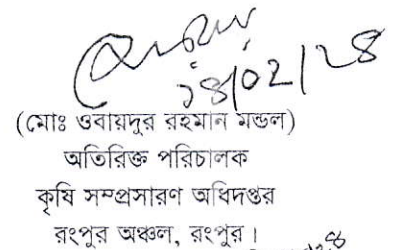 ১৪/০২/২৪
(মোঃ ওবায়দুর রহমান মন্ডল)
অতিরিক্ত পরিচালক
কৃষি সম্প্রসারণ অধিদপ্তর
রংপুর অঞ্চল, রংপুর।